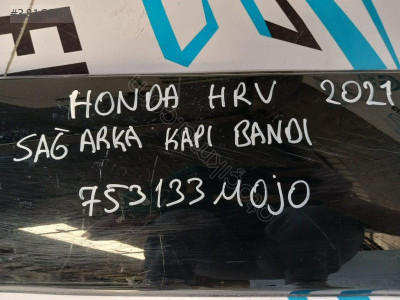 HONDA HRV 2021
SAĞ ARKA KAPI BANDI
753133M0J0